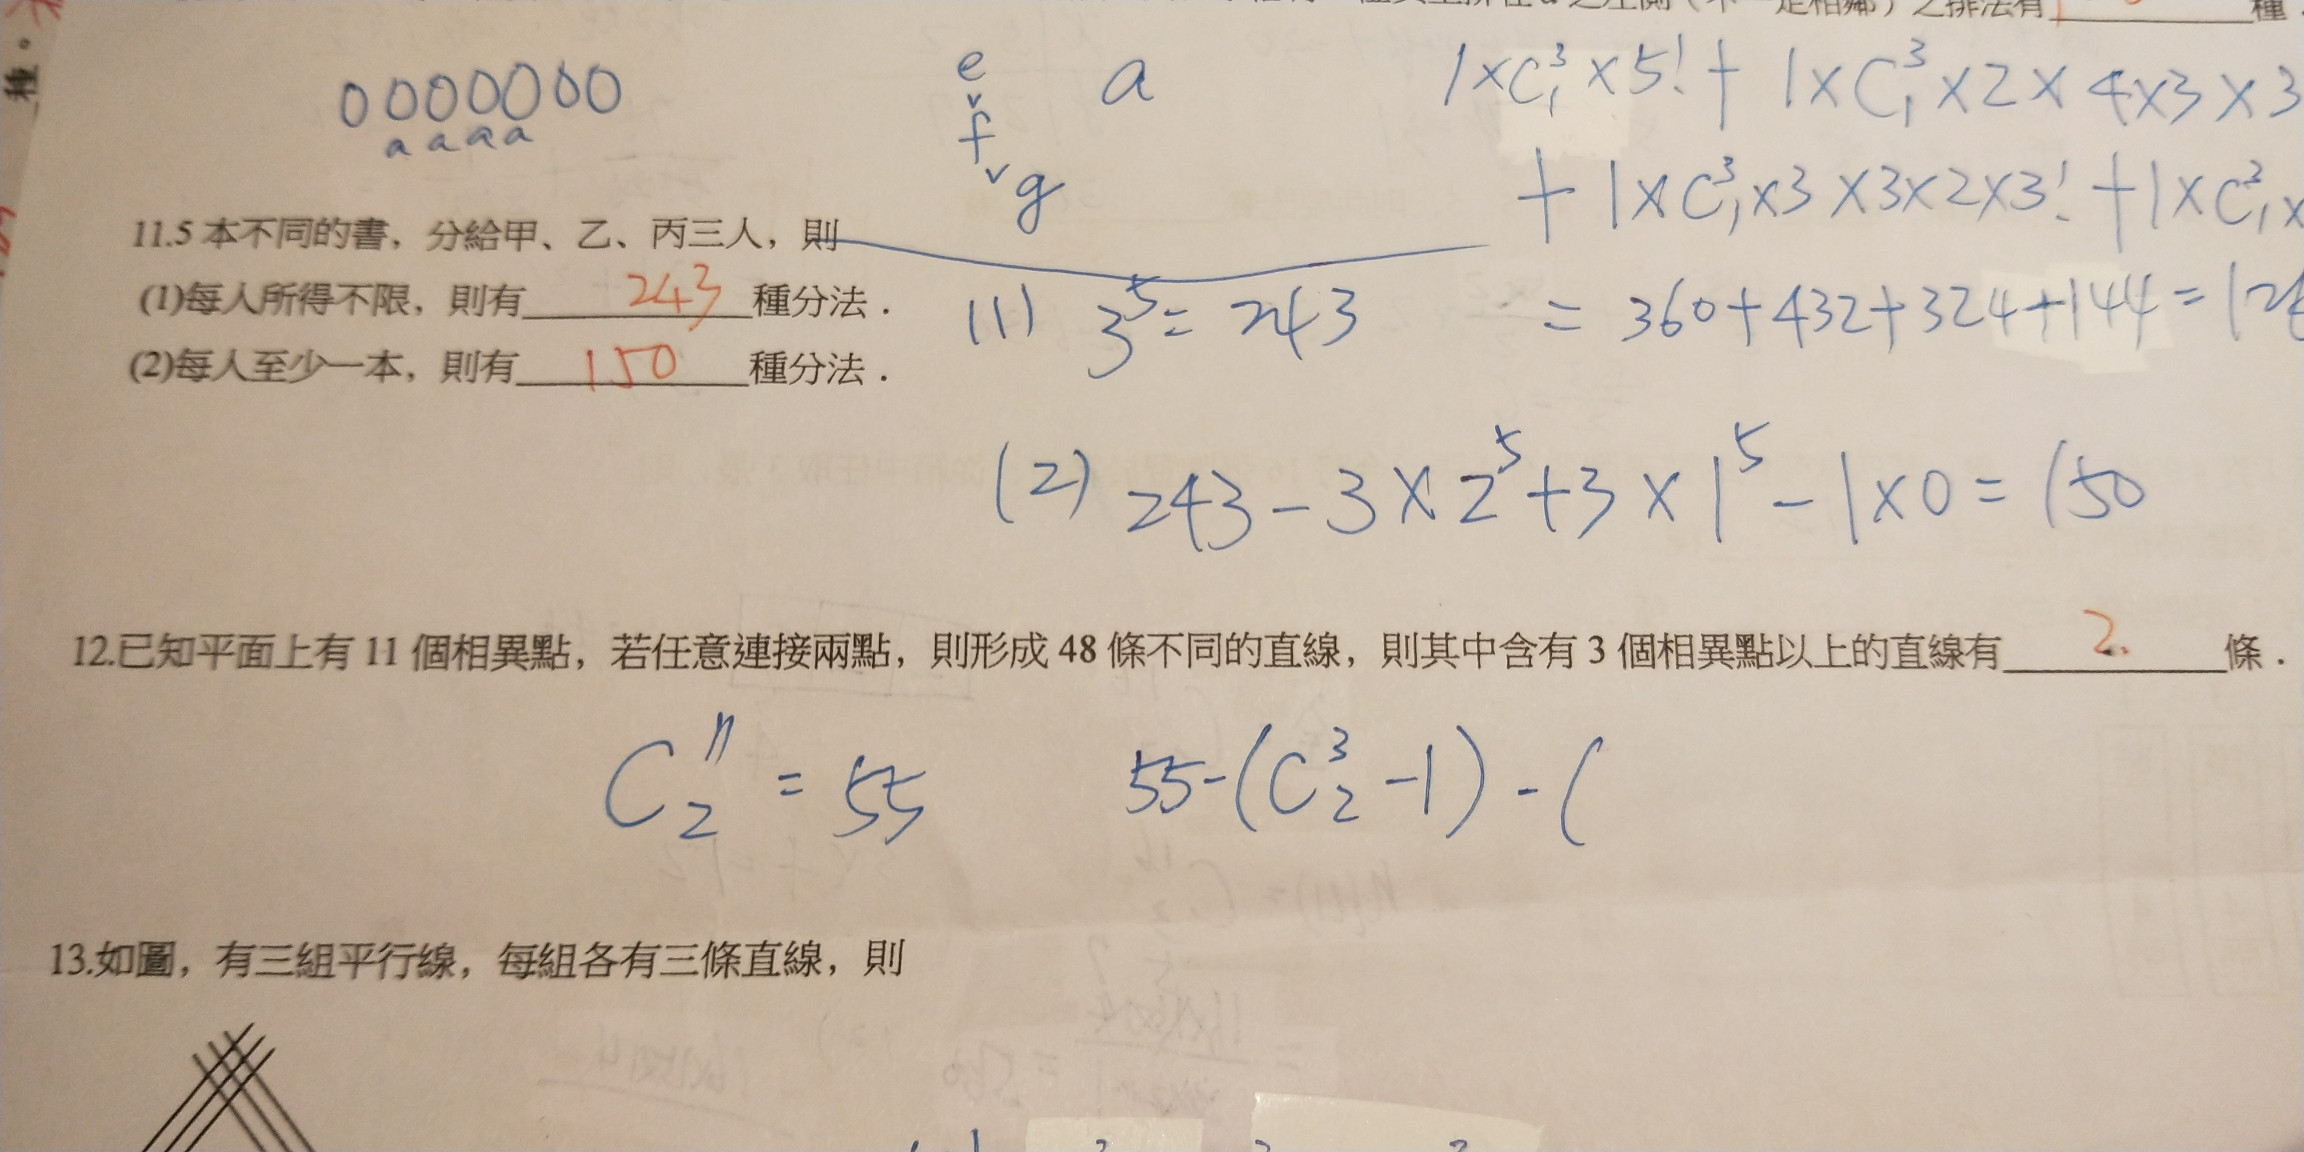 之排法有 種
0000000
aaaa
e
v
f
v g
a
1×C³₁×5!+1×C³₁×2×4×3×3
+1×C³₁×3×3×2×3!+1×C³₁×
=360+432+324+144=12
11.5本不同的書，分給甲、乙、丙三人，則
(1)每人所得不限，則有 243 種分法．
(2)每人至少一本，則有 150 種分法．
(1) 3⁵=243
(2) 243-3×2⁵+3×1⁵-1×0=150
12.已知平面上有11個相異點，若任意連接兩點，則形成48條不同的直線，則其中含有3個相異點以上的直線有 2. 條．
C¹¹₂=55 55-(C³₂-1)-(
13.如圖，有三組平行線，每組各有三條直線，則